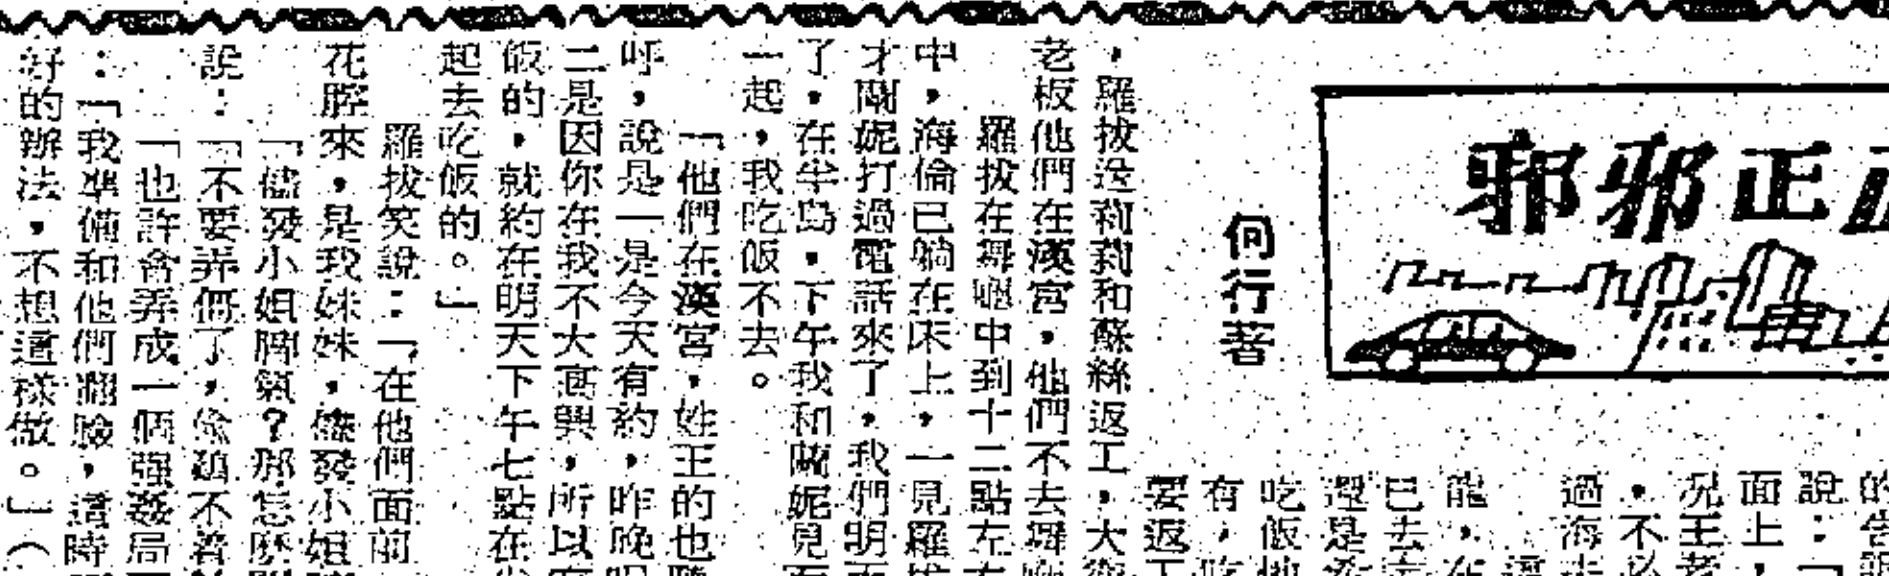 正邪邪
何行著
的告
說：「
面上，
況王老
，不必
過海
這
龍，在
已去
還是
吃飯
有，吃
要返工
，羅拔送莉莉和蘇絲返工，大
老板他們在漢宮，他們不去舞
羅拔在舞廳中到十二點左右
中，海倫已躺在床上，一見羅拔
才蘭妮打過電話來了，我們明
了，在半島，下午我和蘭妮見面
一起，我吃飯不去。
「他們在漢宮，姓王的也
呼，說是一是今天有約，昨晚
二是因你在我不大高興，所以
飯的，就約在明天下午七點在
起去吃飯的。」
羅拔笑說：「在他們面前
花腔來，是我妹妹，儘發小姐
「儘發小姐脾氣？那怎麽
說：「不要弄僵了，
「也許會弄成一個強姦局
：「我準備和他們翻臉，這時
好的辦法，不想這樣做。」（